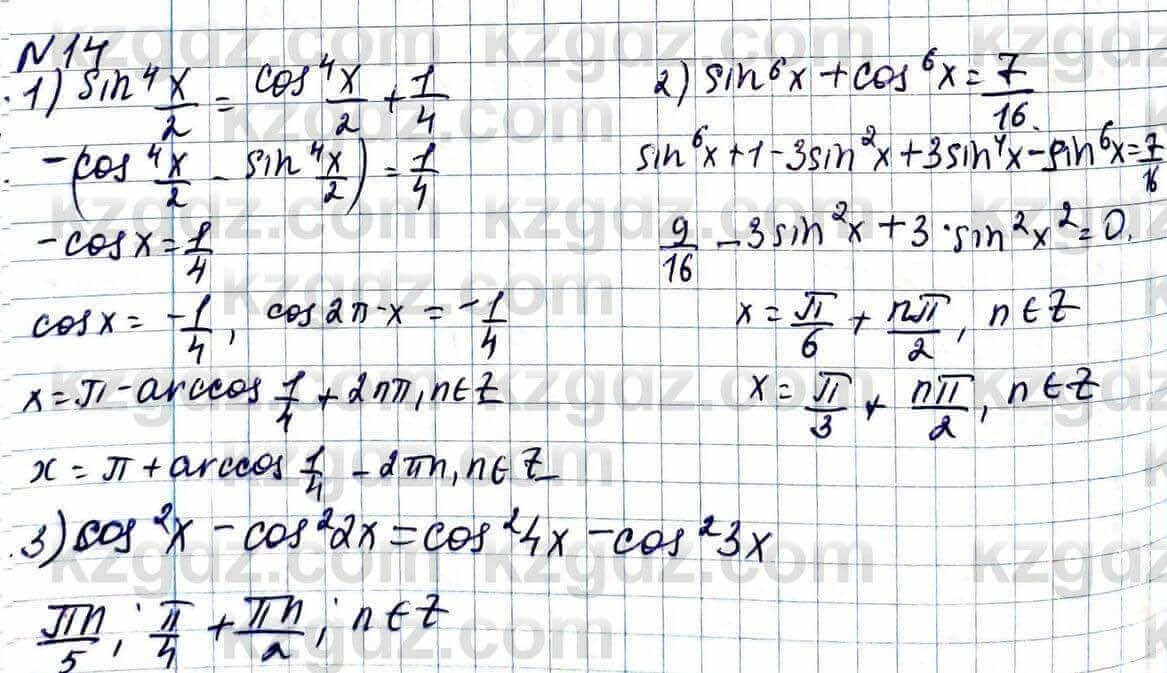 N14
1) sin⁴ x/2 = cos⁴ x/2 + 1/4
-(cos⁴ x/2 - sin⁴ x/2) = 1/4
-cosx = 1/4
cosx = -1/4, cos2π-x = -1/4
x = π - arccos 1/4 + 2nπ, n∈Z
x = π + arccos 1/4 - 2πn, n∈Z
2) sin⁶x + cos⁶x = 7/16
sin⁶x + 1 - 3sin²x + 3sin⁴x - sin⁶x = 7/16
9/16 - 3sin²x + 3·sin²x² = 0.
x = π/6 + nπ/2, n∈Z
x = π/3 + nπ/2, n∈Z
3) cos²x - cos²2x = cos²4x - cos²3x
πn/5; π/4 + πn/2; n∈Z
kzgdz.com